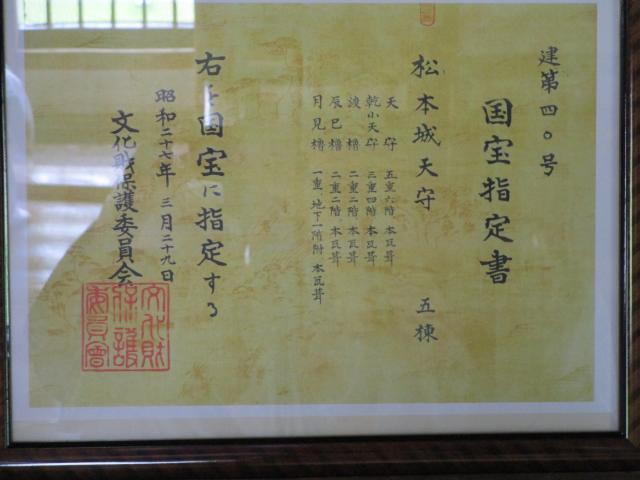 建第四〇号
国宝指定書
松本城天守 五棟
天守 五重六階 本瓦葺
乾小天守 三重四階 本瓦葺
渡櫓 二重二階 本瓦葺
辰巳櫓 二重二階 本瓦葺
月見櫓 一重 地下一階附 本瓦葺
右を国宝に指定する
昭和二十七年三月二十九日
文化財保護委員会
文化財
保護
委員會